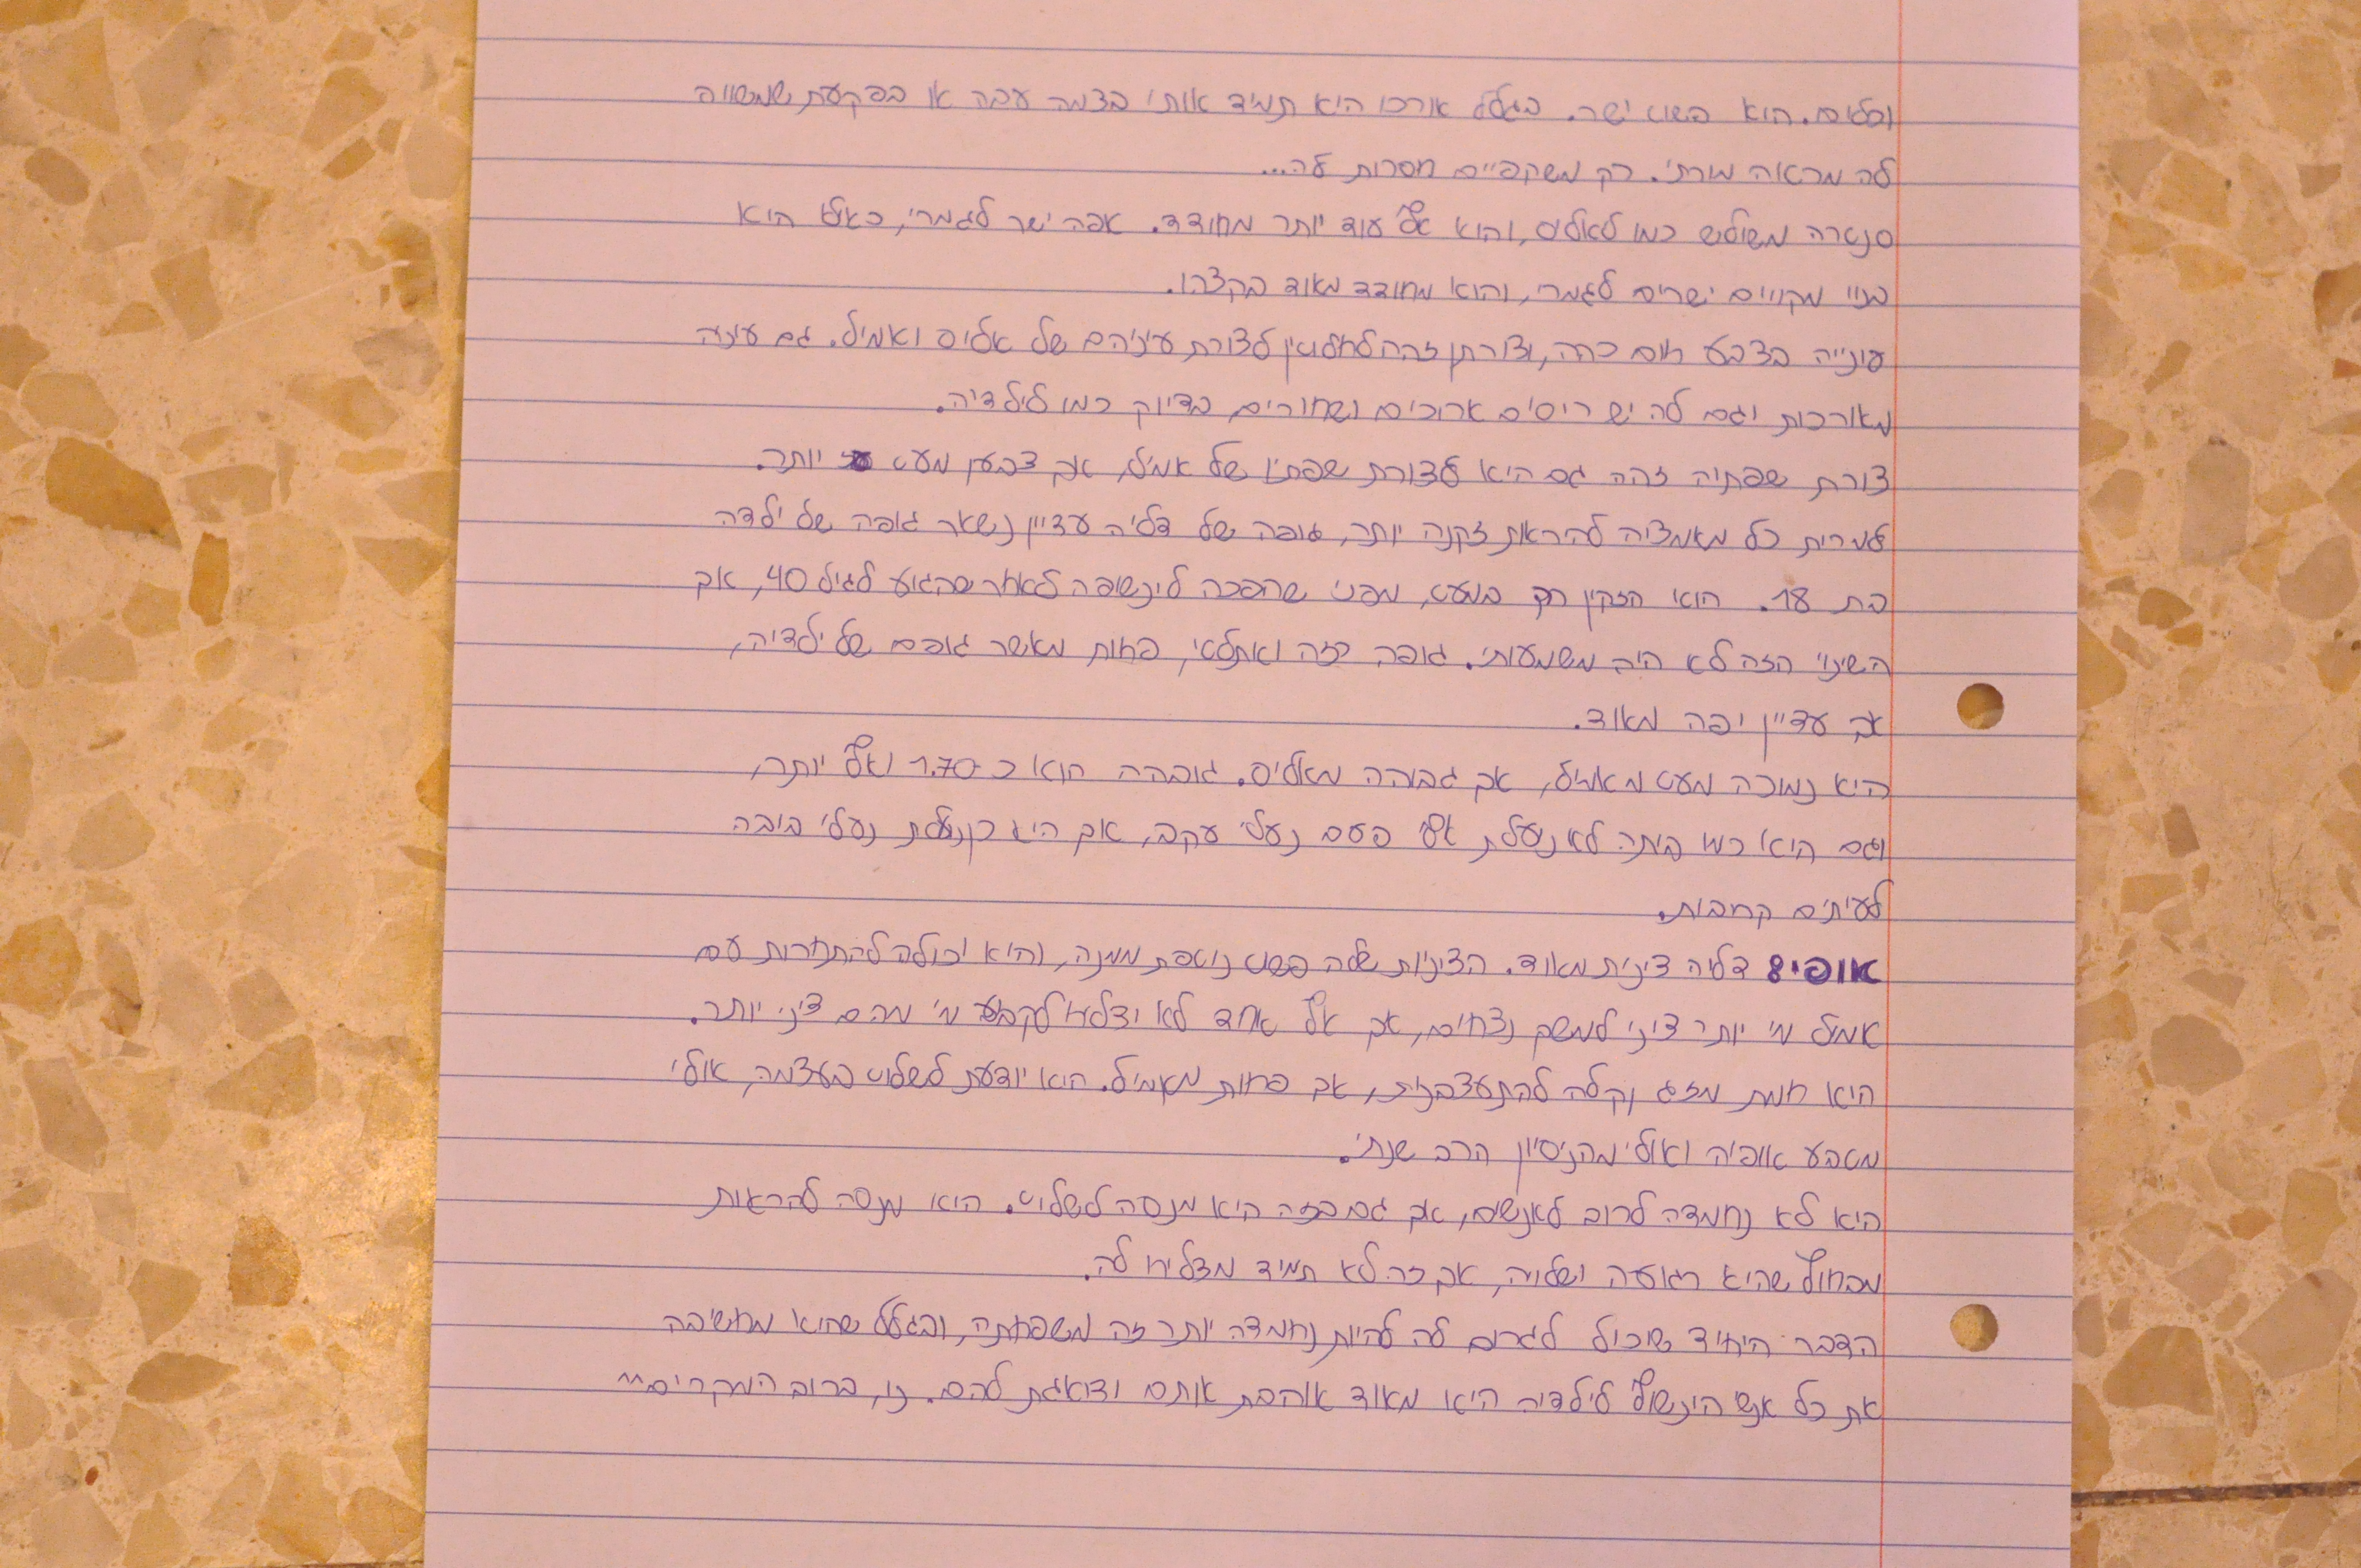 וכלים. הוא פשוט ישר. בגלל אורכו היא תמיד אותי בצמה עבה או בפקעת שמשווה
לה מראה מורתי. רק משקפיים חסרות לה...
סנטרה משולש כמו לאליס, והוא אף עוד יותר מחודד. אפה ישר לגמרי, כאילו היא
בנוי מקווים ישרים לגמרי, והוא מחודד מאוד בקצהו.
עונייה בצבע חום כהה, וצורתן זהה לחלוטין לצורת עיניהם של אליס ואמיל. גם עיניה
מאורכות וגם לה יש ריסים ארוכים ושחורים, בדיוק כמו לילדיה.
צורת שפתיה זהה גם היא לצורת שפתיו של אמיל, אך צבען מעט יותר.
למרות כל מאמציה להיראות זקנה יותר, גופה של דליה עדיין נשאר גופה של ילדה
בת 18. הוא הזקין רק במעט, מפני שהפכה לינשופה לאחר שהגיע לגיל 40, אך
השינוי הזה לא היה משמעותי. גופה רזה ואתלטי, פחות מאשר גופם של ילדיה,
אך עדיין יפה מאוד.
היא נמוכה מעט מאמיל, אך גבוהה מאליס. גובהה הוא כ 1.70 ואף יותר,
וגם היא כמו ביתה לא נועלת אף פעם נעלי עקב, אך היא כן נועלת נעלי בובה
לעיתים קרובות.
אופי: דליה צינית מאוד. הציניות שלה פשוט נוטפת ממנה, והיא יכולה להתחרות עם
אמיל מי יותר ציני למשך נצחים, אך אף אחד לא יצליח לקבוע מי מהם ציני יותר.
היא חמת מזג וקלה להתעצבנות, אך פחות מאמיל. היא יודעת לשלוט בעצמה, אולי
מטבע אופיה ואולי מהניסיון הרב שנתי.
היא לא נחמדה לרוב לאנשים, אך גם בזה היא מנסה לשלוט. היא מנסה להראות
מבחוץ שהיא רגועה ושלווה, אך זה לא תמיד מצליח לה.
הדבר היחיד שיכול לגרום לה להיות נחמדה יותר זה משפחתה, ובגלל שהיא מחשיבה
את כל אנשי הינשוף לילדיה היא מאוד אוהבת אותם ודואגת להם. נו, ברוב המקרים...